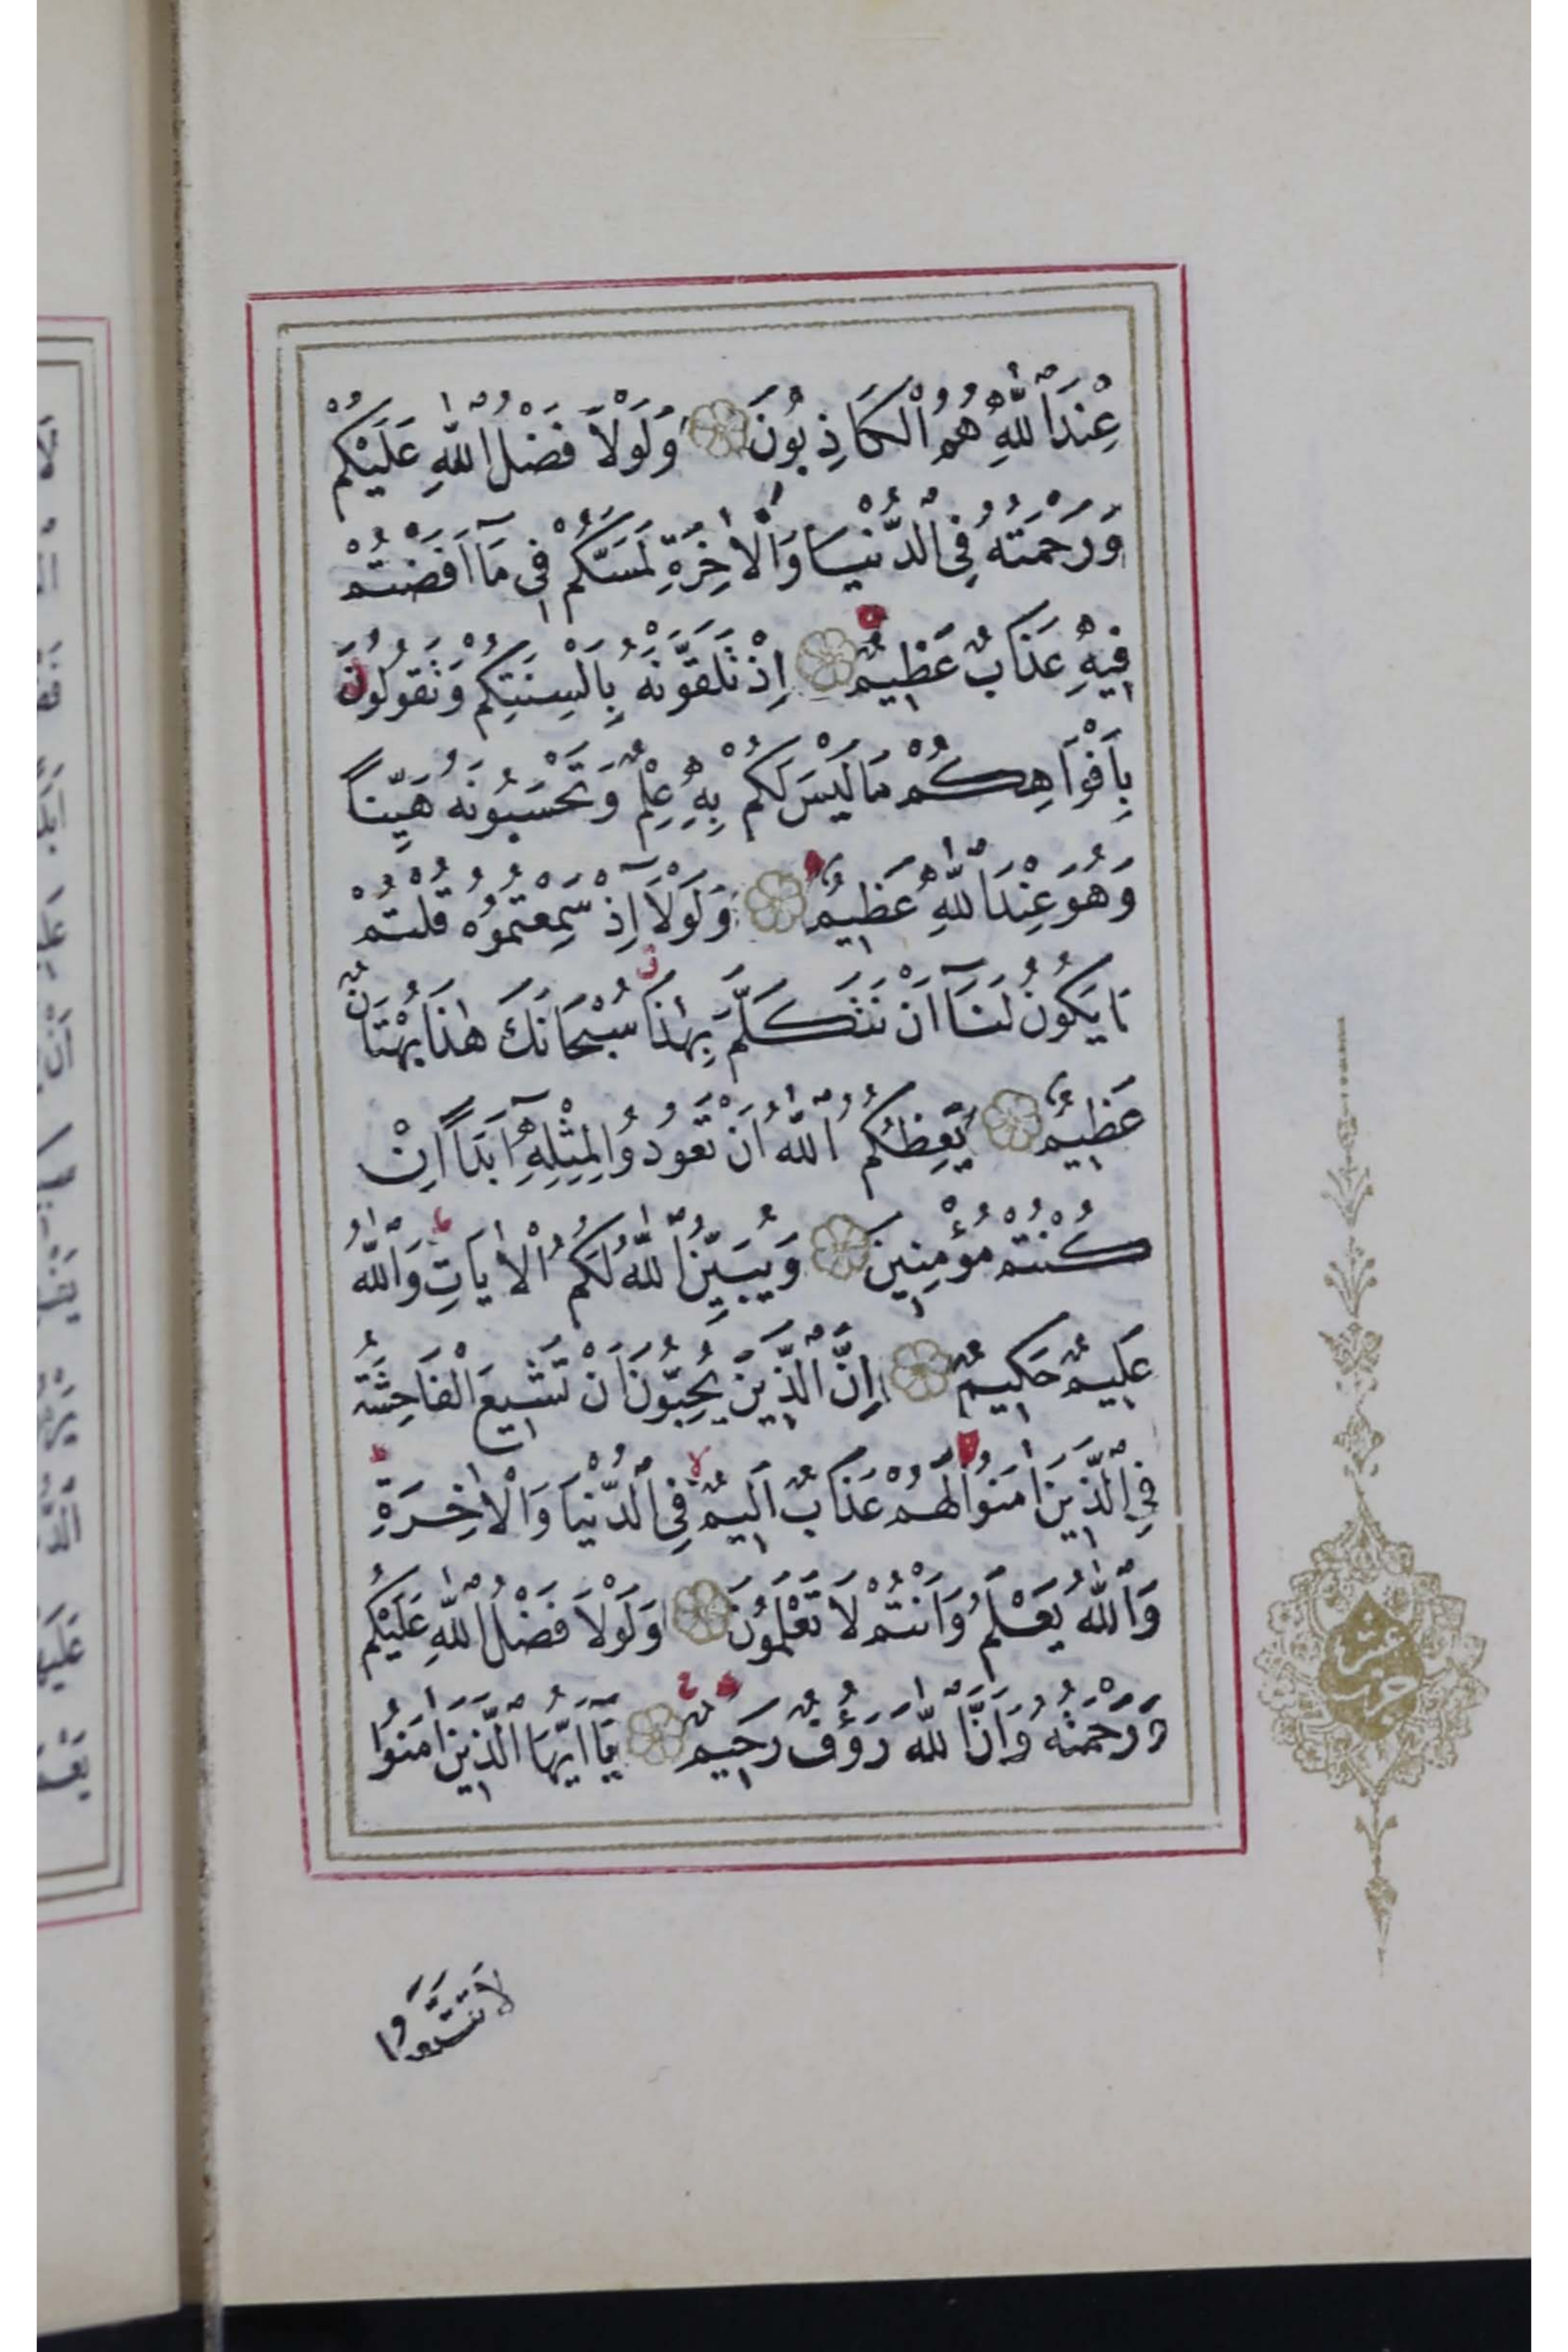 عِنْدَ اللّٰهِ هُمُ الْكَاذِبُونَ وَلَوْلَا فَضْلُ اللّٰهِ عَلَيْكُمْ
وَرَحْمَتُهُ فِي الدُّنْيَا وَالْاٰخِرَةِ لَمَسَّكُمْ فٖي مَٓا اَفَضْتُمْ
فٖيهِ عَذَابٌ عَظٖيمٌ اِذْ تَلَقَّوْنَهُ بِاَلْسِنَتِكُمْ وَتَقُولُونَ
بِاَفْوَاهِكُمْ مَا لَيْسَ لَكُمْ بِهٖ عِلْمٌ وَتَحْسَبُونَهُ هَيِّنًا
وَهُوَ عِنْدَ اللّٰهِ عَظٖيمٌ وَلَوْلَٓا اِذْ سَمِعْتُمُوهُ قُلْتُمْ
مَا يَكُونُ لَنَٓا اَنْ نَتَكَلَّمَ بِهٰذَا سُبْحَانَكَ هٰذَا بُهْتَانٌ
عَظٖيمٌ يَعِظُكُمُ اللّٰهُ اَنْ تَعُودُوا لِمِثْلِهٖٓ اَبَدًا اِنْ
كُنْتُمْ مُؤْمِنٖينَ وَيُبَيِّنُ اللّٰهُ لَكُمُ الْاٰيَاتِ وَاللّٰهُ
عَلٖيمٌ حَكٖيمٌ اِنَّ الَّذٖينَ يُحِبُّونَ اَنْ تَشٖيعَ الْفَاحِشَةُ
فِي الَّذٖينَ اٰمَنُوا لَهُمْ عَذَابٌ اَلٖيمٌ فِي الدُّنْيَا وَالْاٰخِرَةِ
وَاللّٰهُ يَعْلَمُ وَاَنْتُمْ لَا تَعْلَمُونَ وَلَوْلَا فَضْلُ اللّٰهِ عَلَيْكُمْ
وَرَحْمَتُهُ وَاَنَّ اللّٰهَ رَؤُفٌ رَحٖيمٌ يَٓا اَيُّهَا الَّذٖينَ اٰمَنُوا